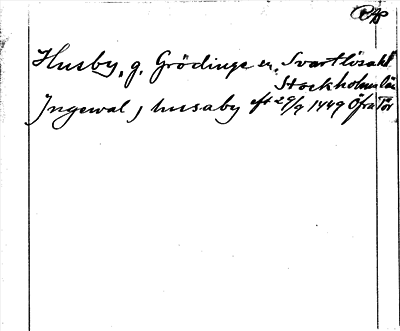 Husby, g. Grödinge sn. Svartlösa hd
Stockholms län
Ingewal j husaby eft 29/9 1449 Öfra Tör